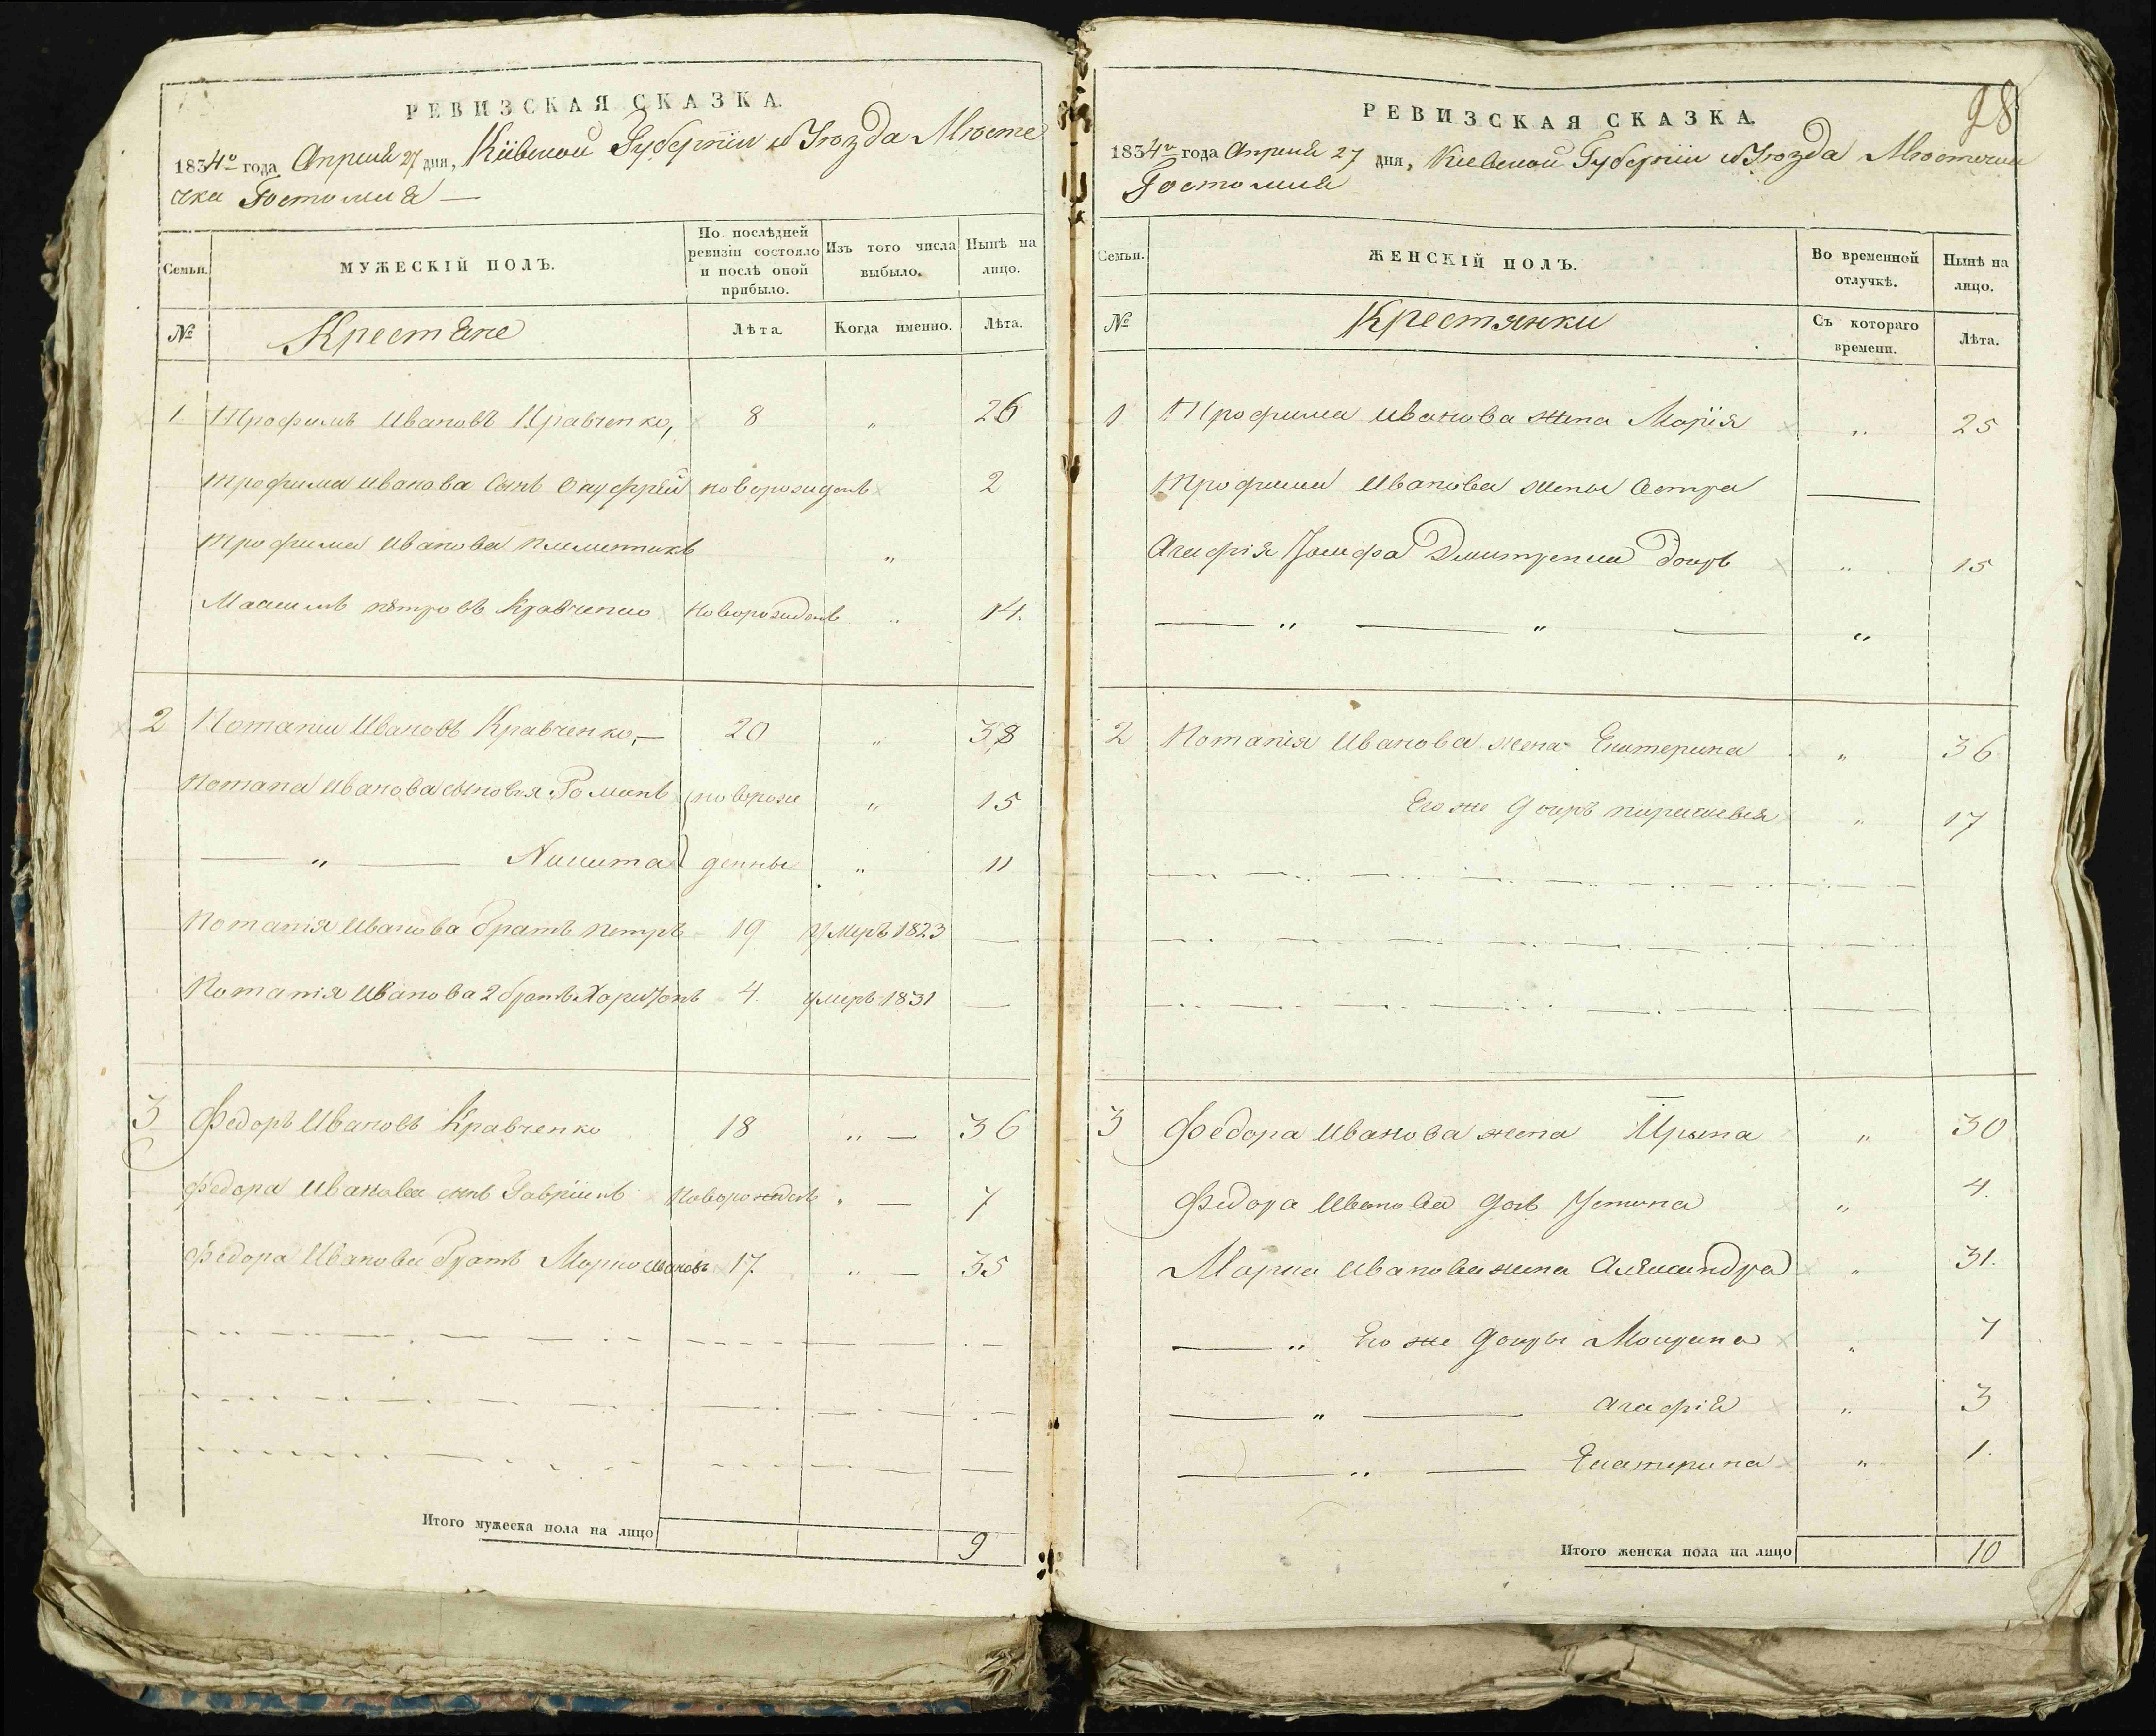 РЕВИЗСКАЯ СКАЗКА.
1834го года Апреля 27 дня, Кіевской Губерніи и Уѣзда Мѣсте
чка Гостомля —
Семьи. МУЖЕСКІЙ ПОЛЪ. По послѣдней ревизіи состояло и послѣ оной прибыло. Изъ того числа выбыло. Нынѣ на лицо.
№ Крестяне Лѣта. Когда именно. Лѣта.
1 Трофимъ Ивановъ Кравченко, 8 „ 26
Трофима Иванова Сынъ Онуфрѣй новорожденъ 2
Трофима Иванова племянникъ „
Максимъ петровъ Кравченко новорожденъ „ 14.
2 Потапій Ивановъ Кравченко, — 20 „ 38
Потапа Иванова сыновья Романъ новорож „ 15
— „ — Никита денны „ 11
Потапія Иванова братъ петръ 19 умеръ 1823 —
Потапія Иванова 2 братъ Харитонъ 4. умеръ 1831 —
3 Федоръ Ивановъ Кравченко 18 „ — 36
Федора Иванова сынъ Гаврiилъ новорожденъ „ — 7
Федора Иванова Братъ Марко Ивановъ 17 „ — 35
Итого мужеска пола на лицо 9
98
РЕВИЗСКАЯ СКАЗКА.
1834го года Апреля 27 дня, Кіевской Губерніи и Уѣзда Мѣстечка
Гостомля
Семьи. ЖЕНСКІЙ ПОЛЪ. Во временной отлучкѣ. Нынѣ на лицо.
№ Крестянки Съ котораго времени. Лѣта.
1 Трофима Иванова жена Марія „ 25
Трофима Иванова жены сестра —
Агафія Іосифа Дмитренка дочрь „ 15
— „ — „ — „
2 Потапія Иванова жена Екатерина „ 36
Его же дочрь параскевья „ 17
3 Федора Иванова жена Ирына „ 30
Федора Иванова дочь Устина „ 4.
Марка Иванова жена Александра „ 31.
— „ Его же дочры Мокрина „ 7
— „ — Агафія „ 3
— „ — Екатерина „ 1.
Итого женска пола на лицо 10